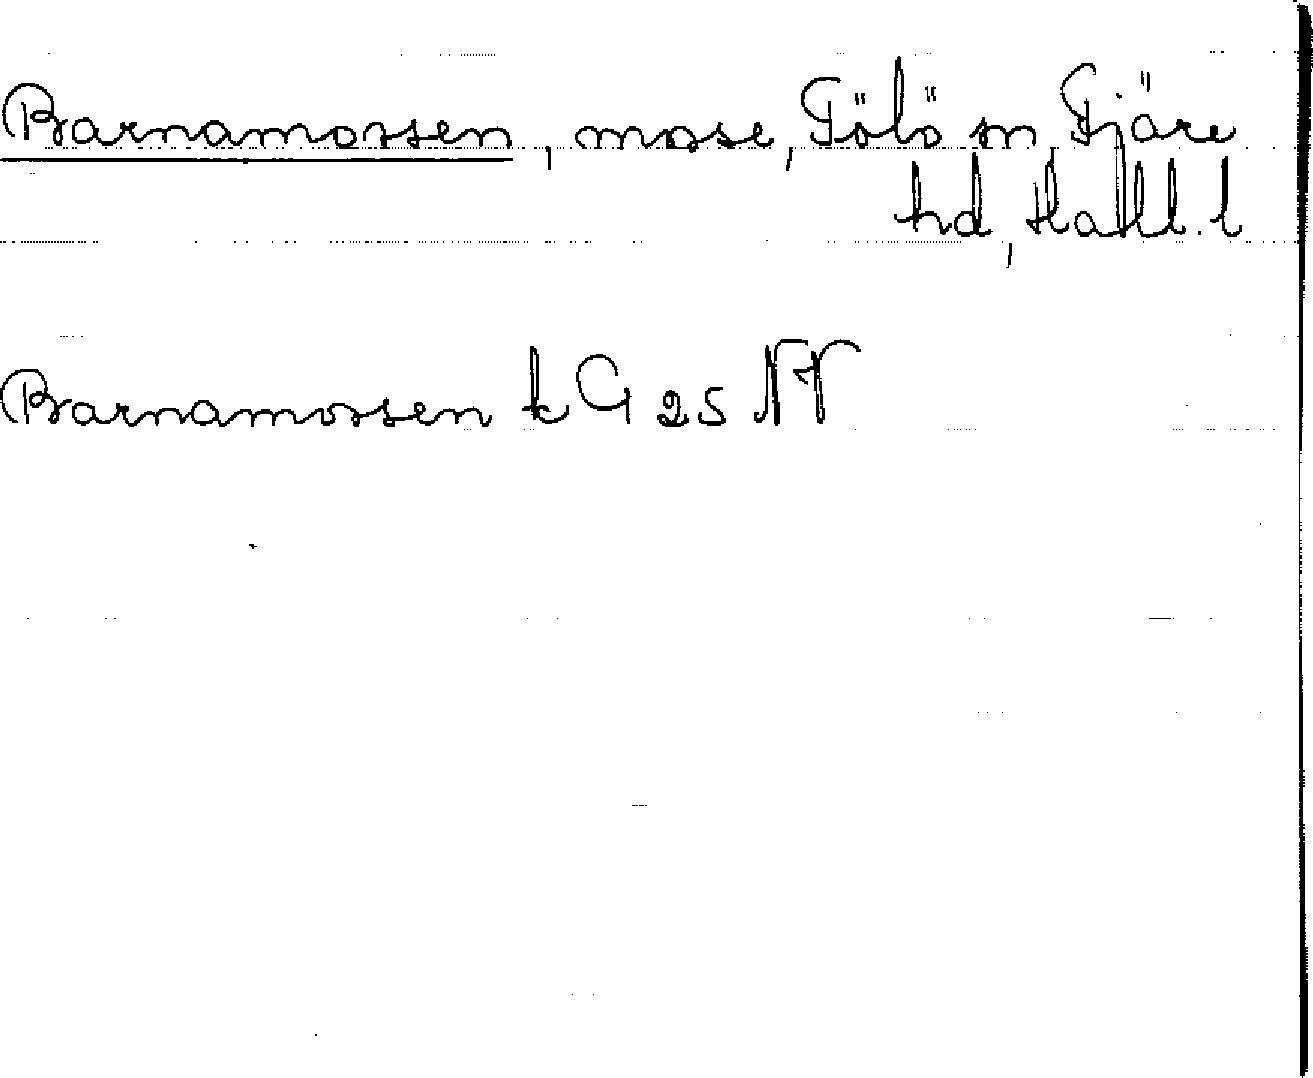 Barnamossen, mose, Fölö sn Fjäre
hd, Hall. l
Barnamossen k G 25 NV